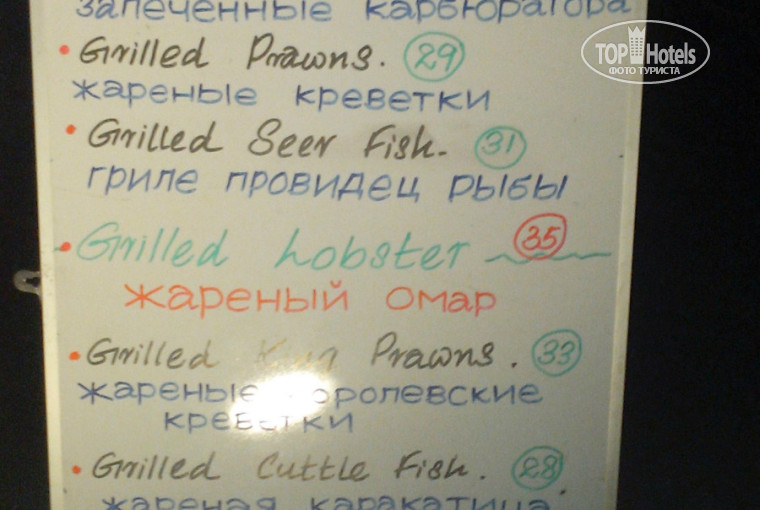 запеченные карбюратора
• Grilled Prawns. 29
жареные креветки
• Grilled Seer Fish. 31
гриле провидец рыбы
• Grilled Lobster 35
жареный омар
• Grilled King Prawns. 33
жареные королевские
креветки
• Grilled Cuttle Fish. 28
жареная каракатица
TOP Hotels
ФОТО ТУРИСТА